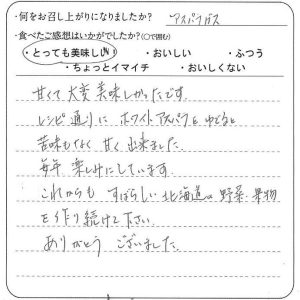 ・何をお召し上がりになりましたか? アスパラガス
・食べたご感想はいかがでしたか?(○で囲む)
・とっても美味しい! ・おいしい ・ふつう
・ちょっとイマイチ ・おいしくない
甘くて大変美味しかったです。
レシピ通りに ホワイトアスパラをゆでると
苦味もなく 甘く 出来ました。
毎年 楽しみにしています。
これからも すばらしい 北海道の 野菜・果物
を作り続けて下さい。
ありがとう ございました。